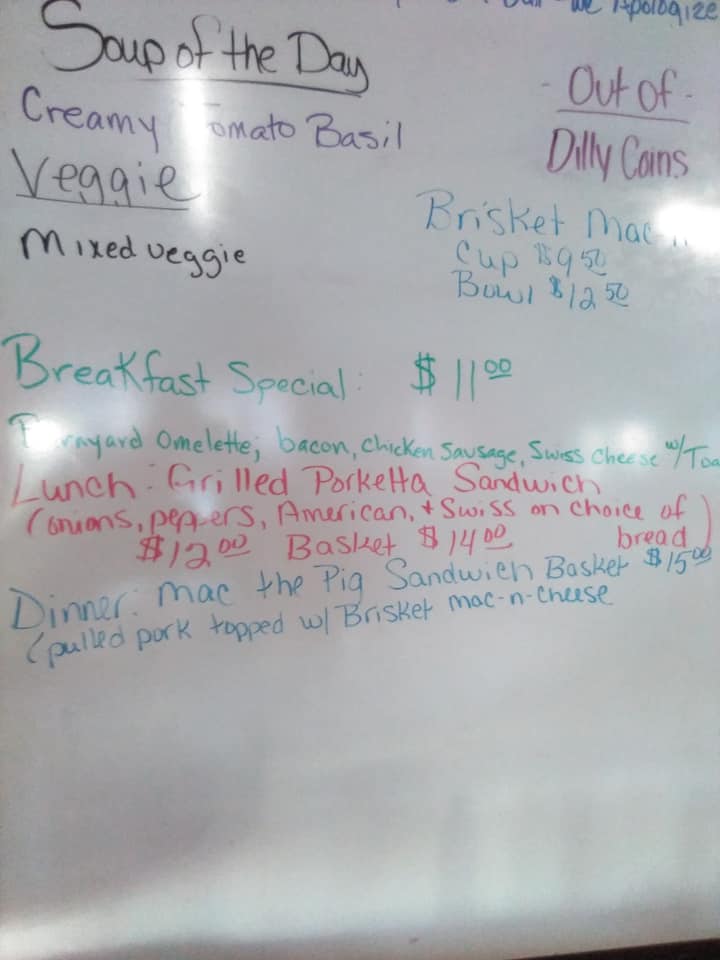 we Apologize
Soup of the Day
Creamy Tomato Basil
Veggie
Mixed veggie
- Out of -
Dilly Coins
Brisket Mac
Cup $9 50
Bowl $12 50
Breakfast Special: $11 00
Barnyard Omelette; bacon, chicken Sausage, Swiss Cheese w/ Toa
Lunch: Grilled Porketta Sandwich
(onions, peppers, American, + Swiss on choice of
bread)
$12 00 Basket $14 00
Dinner: Mac the Pig Sandwich Basket $15 00
(pulled pork topped w/ Brisket mac-n-cheese